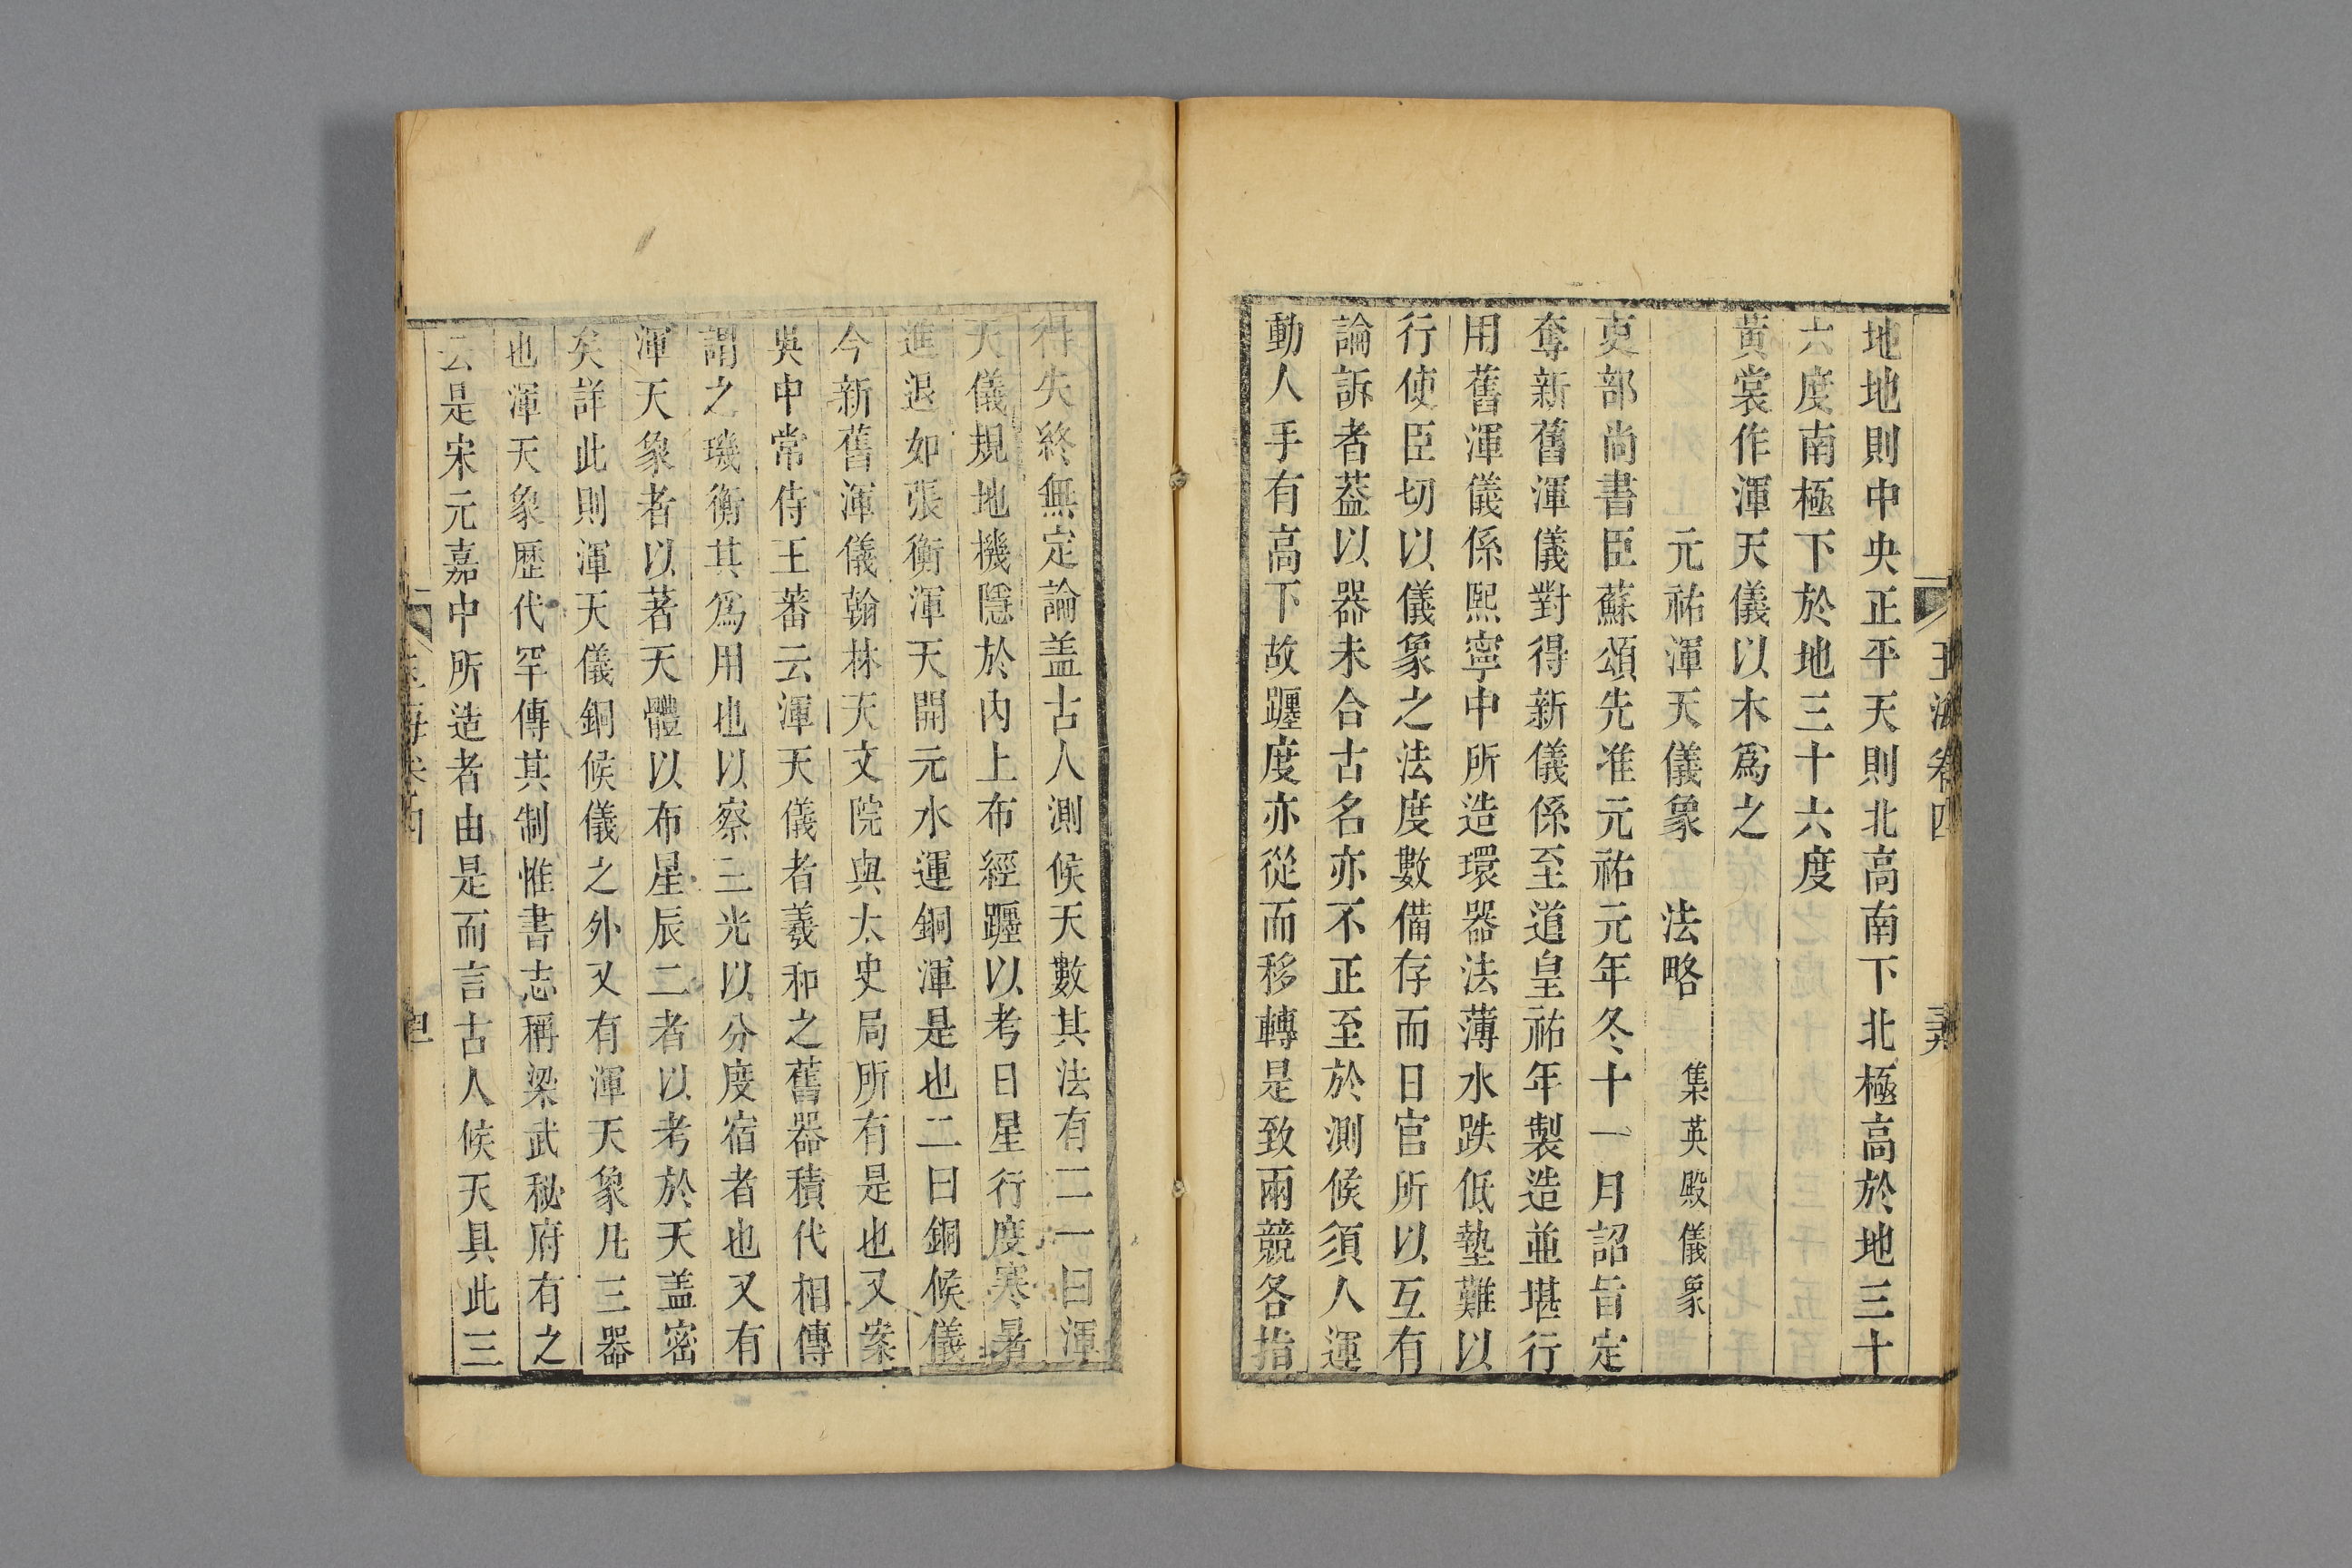 地地則中央正平天則北高南下北極高於地三十
六度南極下於地三十六度
黄裳作渾天儀以木爲之
元祐渾天儀象　法略　集英殿儀象
吏部尚書臣蘇頌先准元祐元年冬十一月詔旨定
奪新舊渾儀對得新儀係至道皇祐年製造並堪行
用舊渾儀係熙寧中所造環器法薄水跌低墊難以
行使臣切以儀象之法度數備存而日官所以互有
論訴者葢以器未合古名亦不正至於測候須人運
動人手有高下故躔度亦從而移轉是致兩競各指
得失終無定論盖古人測候天數其法有二一曰渾
天儀規地機隱於内上布經躔以考日星行度寒暑
進退如張衡渾天開元水運銅渾是也二曰銅候儀
今新舊渾儀翰林天文院與太史局所有是也又案
吳中常侍王蕃云渾天儀者羲和之舊器積代相傳
謂之璣衡其爲用也以察三光以分度宿者也又有
渾天象者以著天體以布星辰二者以考於天盖密
矣詳此則渾天儀銅候儀之外又有渾天象凡三器
也渾天象歷代罕傳其制惟書志稱梁武秘府有之
云是宋元嘉中所造者由是而言古人候天具此三